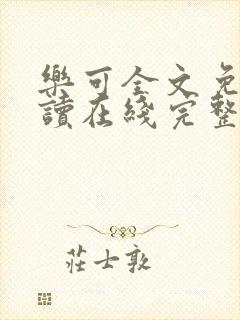 樂可全文免
讀在綫完整
莊士敦